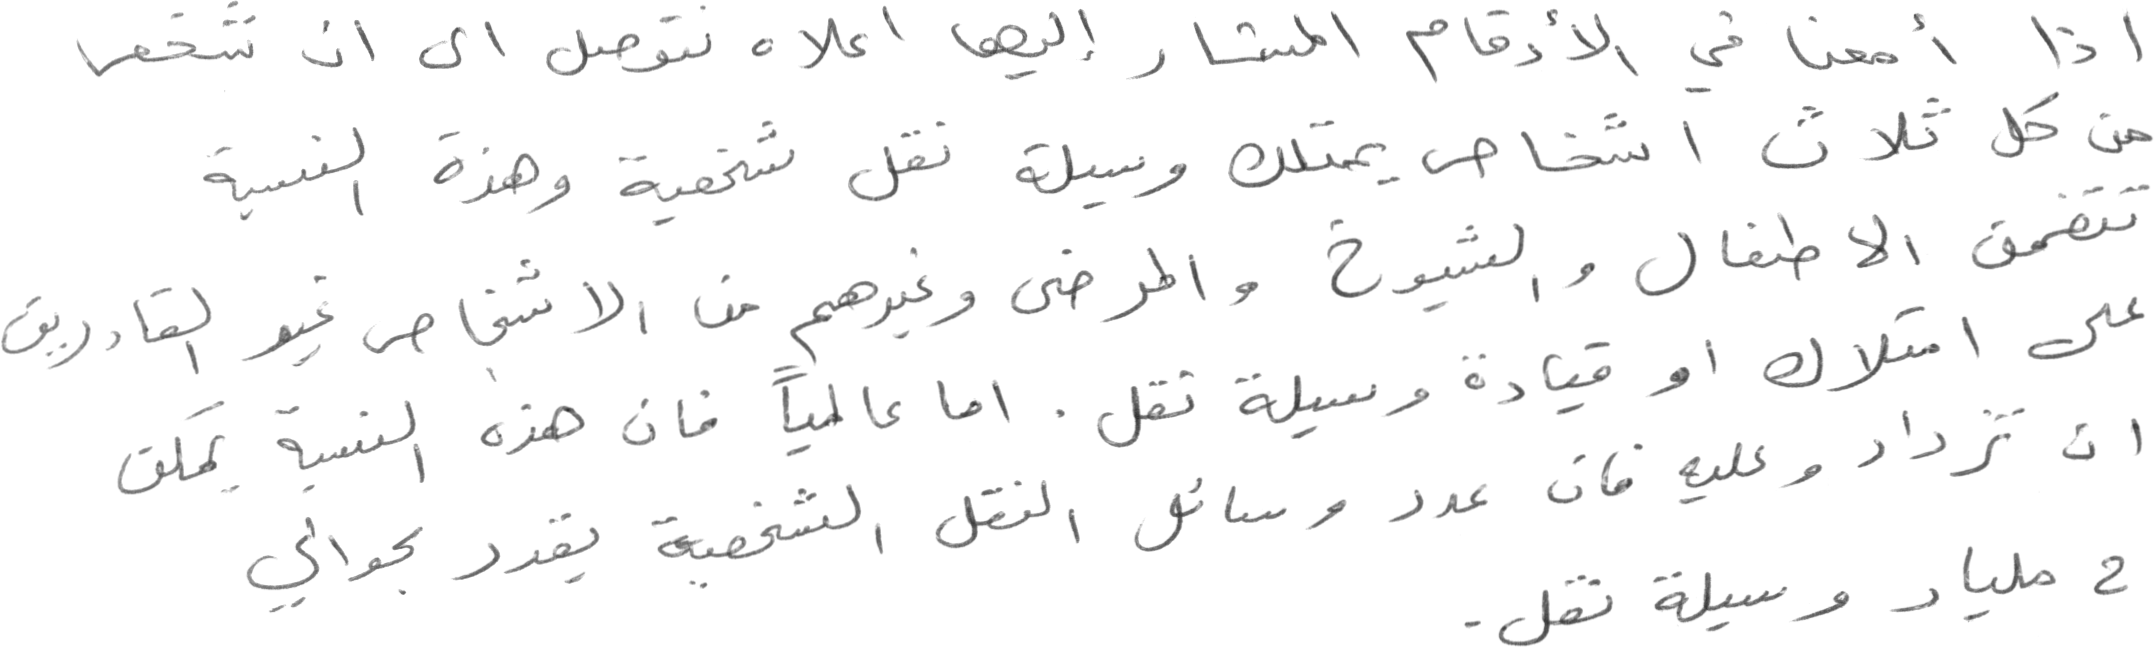 اذا أمعنا في الأرقام المشار إليها اعلاه نتوصل الى ان شخصا
من كل ثلاث اشخاص يمتلك وسيلة نقل شخصية وهذة النسبة
تتضمن الاطفال والشيوخ والمرضى وغيرهم من الاشخاص غير القادرين
على امتلاك او قيادة وسيلة نقل . اما عالمياً فان هذه النسبة يمكن
ان تزداد وعليه فان عدد وسائل النقل الشخصية يقدر بحوالي
2 مليار وسيلة نقل .